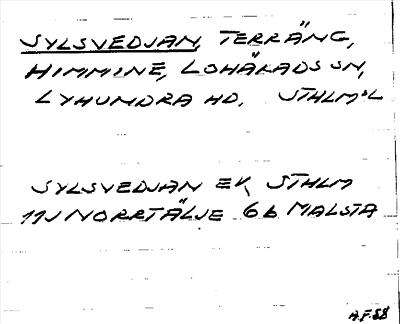 SYLSVEDJAN, TERRÄNG,
HIMMINE, LOHÄRADS SN,
LYHUNDRA HD, STHLMS L
SYLSVEDJAN EK, STHLM
11J NORRTÄLJE 6b MALSTA
A.F.88